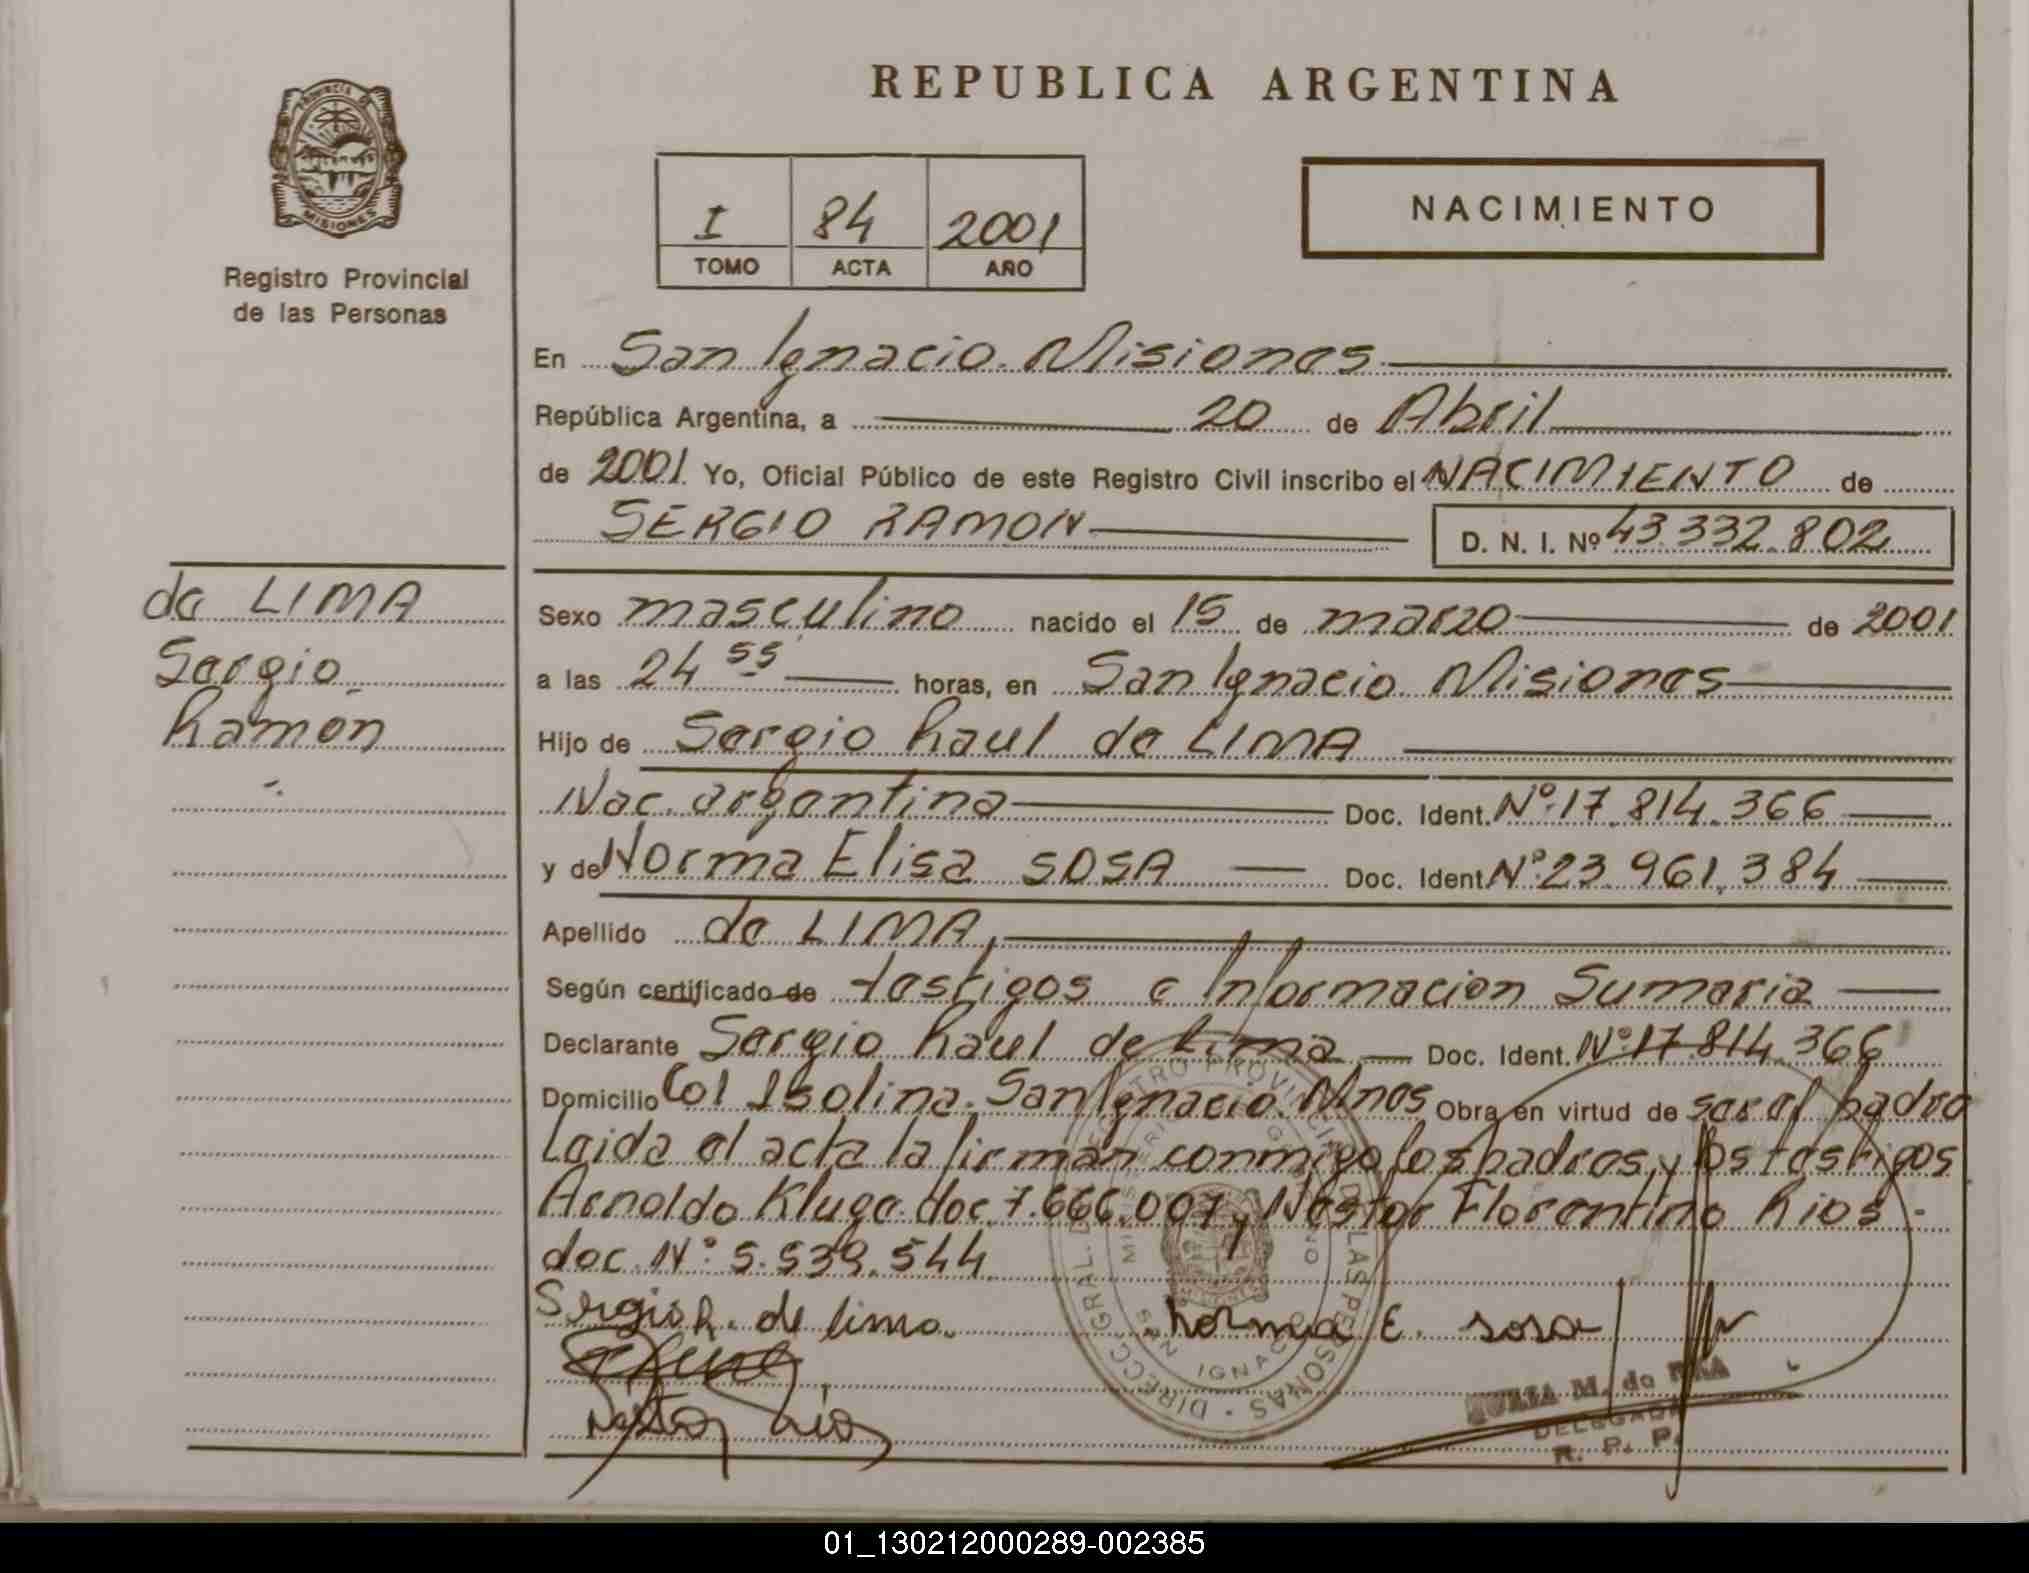 REPUBLICA ARGENTINA
PROVINCIA DE
MISIONES
Registro Provincial
de las Personas
I 84 2001
TOMO ACTA AÑO
NACIMIENTO
En San Ignacio. Misiones
República Argentina, a 20 de Abril
de 2001 Yo, Oficial Público de este Registro Civil inscribo el NACIMIENTO de
SERGIO RAMON D. N. I. Nº 43.332.802
de LIMA
Sergio
Ramón
Sexo masculino nacido el 15 de marzo de 2001
a las 24 55 horas, en San Ignacio Misiones
Hijo de Sergio Raul de LIMA
Nac. argentina Doc. Ident. Nº 17.814.366
y de Norma Elisa SOSA Doc. Ident. Nº 23.961.384
Apellido de LIMA,
Según certificado de testigos e Informacion Sumaria
Declarante Sergio Raul de Lima Doc. Ident. Nº 17.814.366
Domicilio Col Isolina. San Ignacio. Mnes Obra en virtud de ser el padre
Leida el acta la firman conmigo los padres y los testigos
Arnoldo Kluge doc. 7.666.007 y Nestor Florentino Rios
doc. Nº 5.539.544
Sergio R. de lima. Norma E. sosa
Nestor Rios
DIRECC. GRAL. DE REGISTRO PROVINCIAL DE LAS PERSONAS
SAN IGNACIO
M. de
DELEGADA
R. P. P.
01_130212000289-002385